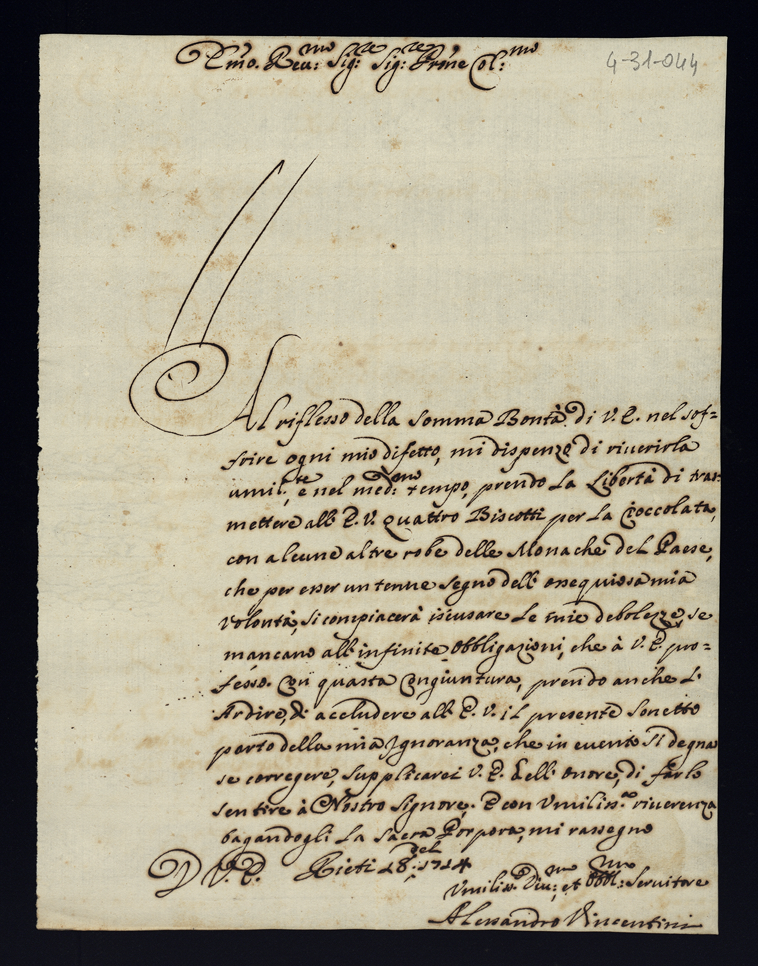 Em̃o. Reu:mo Sig:re Sig:re Prõne Col:mo
4-31-044
Al riflesso della somma Bontà di V. E. nel sof=
frire ogni mio difetto, mi dispenzo di riuerirla
umil:te, e nel med:mo tempo, prendo la Libertà di tras:
mettere all' E. V. quattro Biscotti per la Cioccolata,
con alcune altre robe delle Monache del Paese,
che per esser un tenue segno dell' ossequiosa mia
Volontà, si compiacerà iscusare le mie debolezze, se
mancano all' infinite Obbligazioni, che à V. E. pro=
fesso. Con questa Congiuntura, prendo anche l'
Ardire, di accludere all' E. V. il presente Sonetto
parto della mia Ignoranza, che in euento si degnas
se correggere, supplicarei V. E. dell' onore, di farlo
sentire à Nostro Signore. E con Vmiliss:a riuerenza
bagandogli la Sacra Porpora, mi rassegno
D V. E. Rieti 18: del 1714
Vmiliss:o Diu:mo et Obbl:mo Seruitore
Alessandro Vincentini